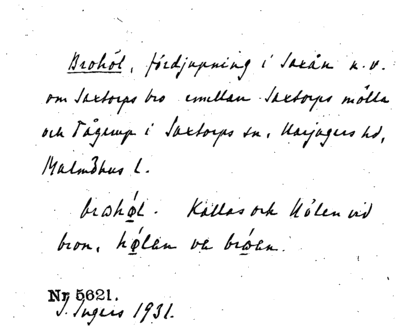 Brohöl, fördjupning i Saxån n.v.
om Saxtorps bro emellan Saxtorps mölla
och Tågerup i Saxtorps sn, Harjagers hd,
Malmöhus l.
brohǿ̨l. Kallas och Hölen vid
bron, hǿ̨len ve brøen.
Nr 5621.
I. Ingers 1931.